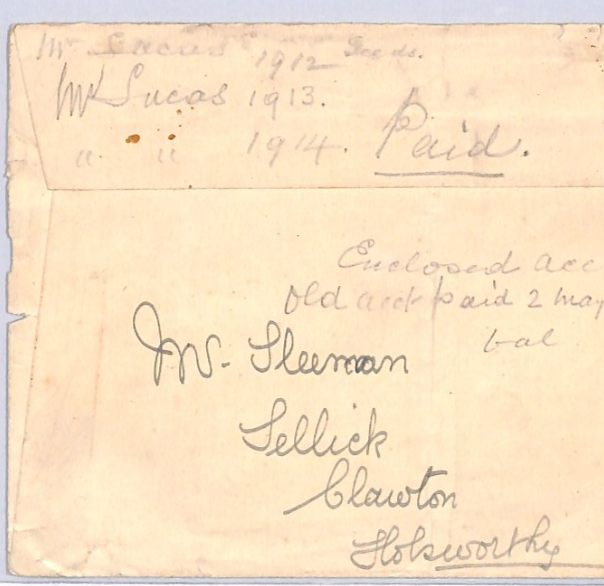 Mr Lucas 1912 Seeds.
Mr Lucas 1913.
" " 1914. Paid.
Enclosed acc
Old acct paid 2 May
bal
Mr. Sleeman
Sellick
Clawton
Holsworthy